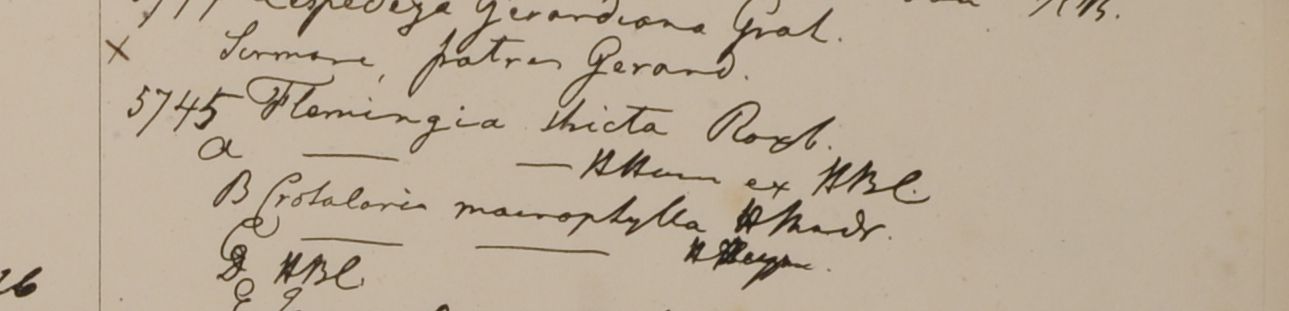 Lespedeza Gerardiana Grah.
x Sirmore, patres Gerard.
5745 Flemingia stricta Roxb.
a — — HHam ex HBC.
B Crotalaria macrophylla HMadr.
C — — HHeyne.
D HBC
E